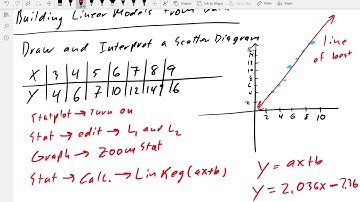 Building Linear Models from Data
Draw and Interpret a Scatter Diagram
X 3 4 5 6 7 8 9
Y 4 6 7 10 12 14 16
Statplot → Turn on
Stat → edit → L1 and L2
Graph → Zoom Stat
Stat → Calc. → LinReg(ax+b)
line
of best
2 4 6 8 10
Y = ax+b
Y = 2.036x - 2.36